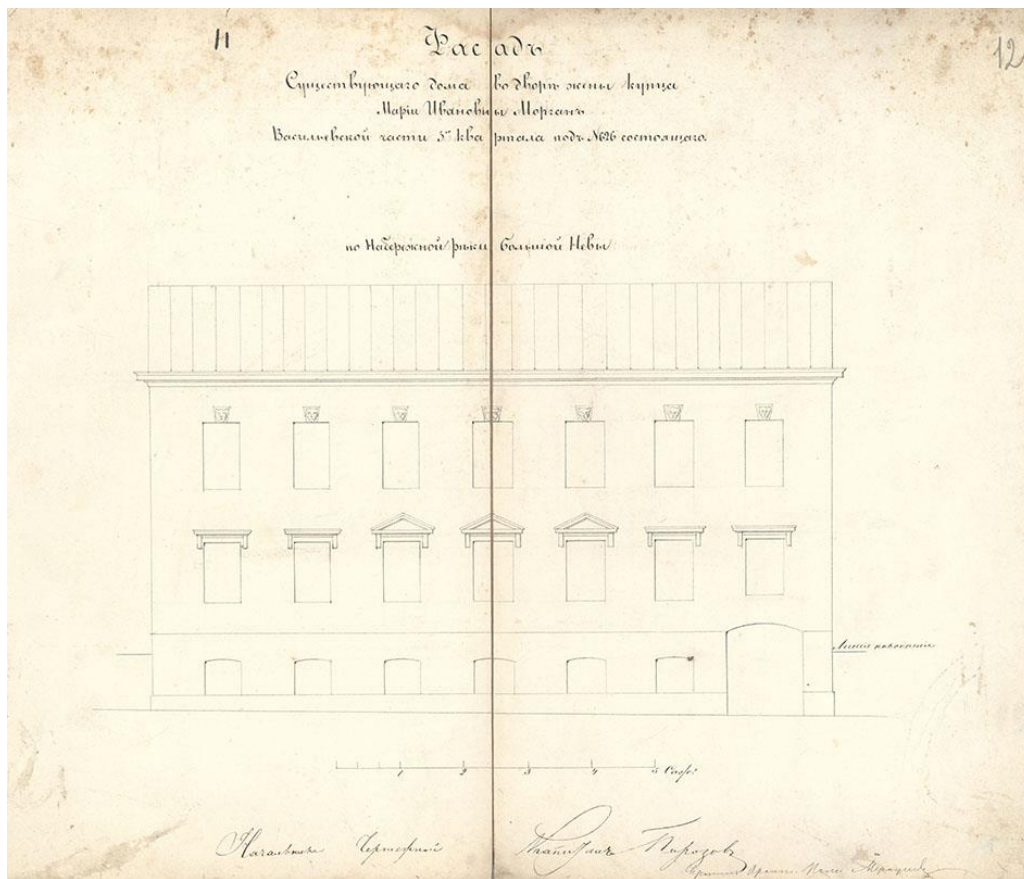 11
12
Фасадъ
Существующаго дома во дворѣ жены купца
Маріи Ивановны Морганъ
Васильевской части 5го квартала подъ №626 состоящаго.
по Набережной рѣки Большой Невы
Линія наводненія
1 2 3 4 5 Саж:
Начальникъ Чертежной Капитанъ Пирозовъ